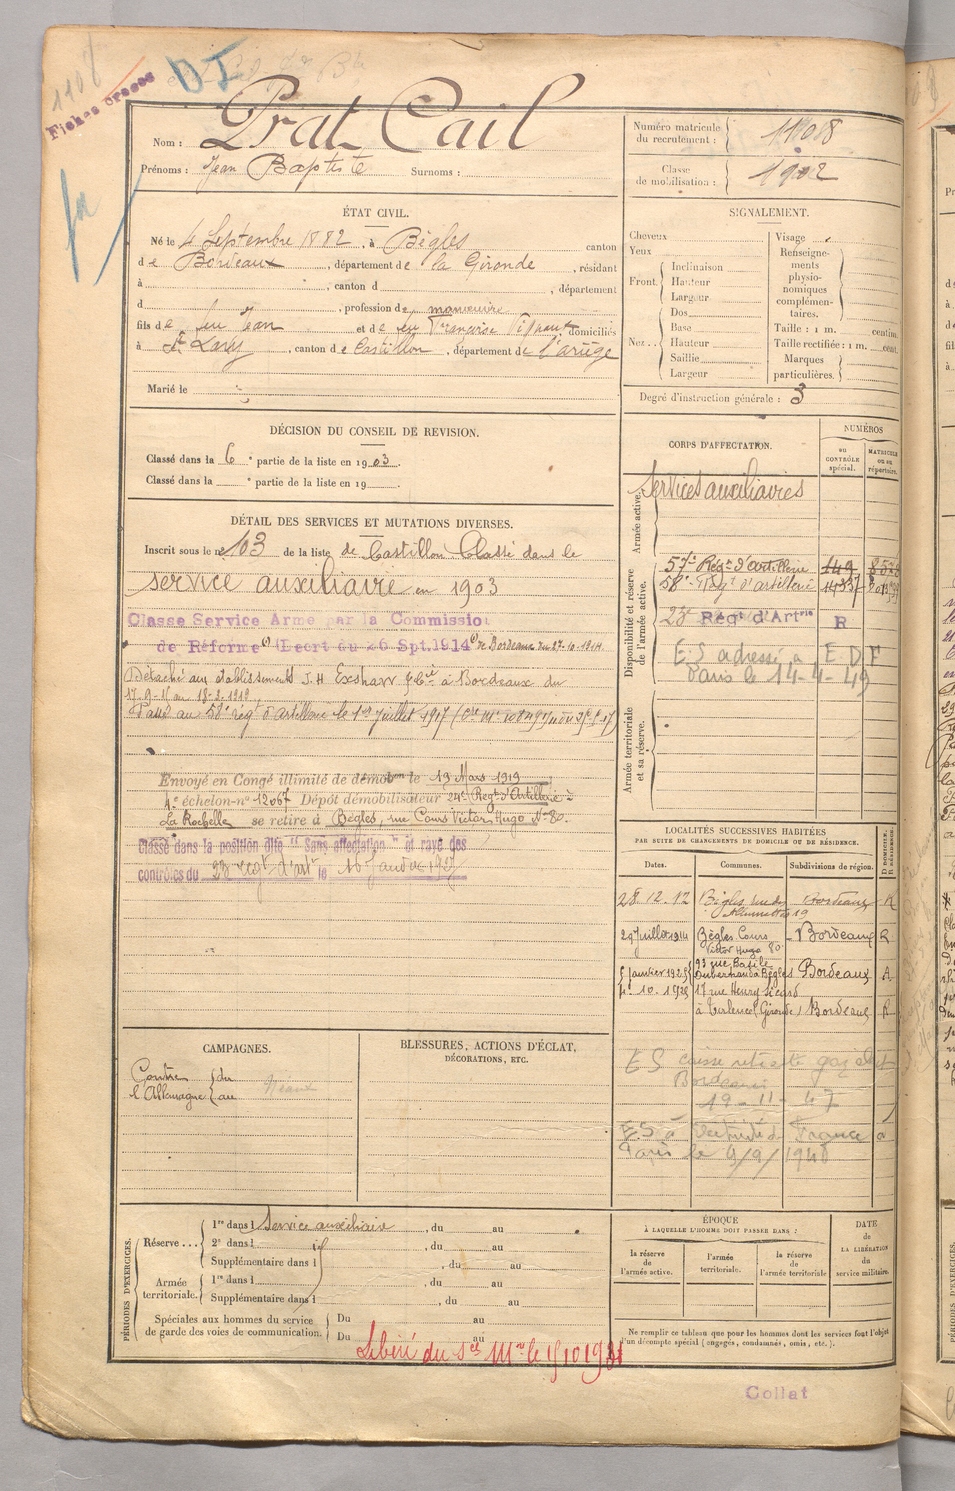 1108
Fiches croses
DI
Nom : Prat Cail
Prénoms : Jean Baptiste Surnoms :
Numéro matricule
du recrutement : 1108
Classe
de mobilisation : 1902
ÉTAT CIVIL.
Né le 4 Septembre 1882, à Bègles canton
de Bordeaux, département de la Gironde, résidant
à , canton d , département
d , profession de manœuvre
fils de feu Jean et de feu Françoise domiciliés
à St Lary, canton de Castillon, département de l'ariège
Marié le
SIGNALEMENT.
Cheveux
Yeux
Front. Inclinaison
Hauteur
Largeur
Nez.. Dos
Base
Hauteur
Saillie
Largeur
Visage
Renseigne-
ments
physio-
nomiques
complémen-
taires.
Taille : 1 m. centim.
Taille rectifiée : 1 m. cent.
Marques
particulières.
Degré d'instruction générale : 3
DÉCISION DU CONSEIL DE REVISION.
Classé dans la 6e partie de la liste en 1903.
Classé dans la e partie de la liste en 19 .
CORPS D'AFFECTATION.
NUMÉROS
au
CONTRÔLE
spécial.
MATRICULE
ou au
répertoire.
Armée active.
Services auxiliaires
Disponibilité et réserve
de l'armée active.
57e Régt d'Artillerie 149
58e Régt d'artillerie
23e Régt d'Artrie R
E.S adressé a E D F
Paris le 14-4-49
Armée territoriale
et sa réserve.
DÉTAIL DES SERVICES ET MUTATIONS DIVERSES.
Inscrit sous le no 103 de la liste de Castillon Classé dans le
service auxiliaire en 1903
Classe Service Arme par la Commission
de Réforme (Decret du 26 Spt. 1914) de Bordeaux du 27.10.1914.
Détaché aux établissements J.H Exshaw & Cie à Bordeaux du
Passé au 58e régt d'artillerie le 1er Juillet 1917
Envoyé en Congé illimité de démobon le 19 Mars 1919
4e échelon-no 12067 Dépôt démobilisateur 24e Régt d'Artillerie à
La Rochelle se retire à Bègles, rue Cours Victor Hugo No 80.
Classé dans la position dite "Sans affectation" et rayé des
contrôles du 23e regt d'art le 16 Janvier 1927
LOCALITÉS SUCCESSIVES HABITÉES
PAR SUITE DE CHANGEMENTS DE DOMICILE OU DE RÉSIDENCE.
Dates. Communes. Subdivisions de région. D DOMICILE. R RÉSIDENCE.
28.12.12 Bègles rue des 19 Bordeaux R
29 Juillet 1914 Bègles Cours
Victor Hugo 80 Bordeaux R
5 Janvier 1925 93 rue Basile
à Bègles Bordeaux
4.10.1928 17 rue Henry Sicard
à Gironde Bordeaux R
ES caisse retraite gaz
Bordeaux
19-11-47
E.S à Electricité de France à
Paris le 9/9/1948
CAMPAGNES.
Contre
l'Allemagne du
au
BLESSURES, ACTIONS D'ÉCLAT,
DÉCORATIONS, ETC.
PÉRIODES D'EXERCICES.
Réserve... 1re dans l Service auxiliaire, du au
2e dans l , du au
Supplémentaire dans l , du au
Armée
territoriale. 1re dans l , du au
Supplémentaire dans l , du au
Spéciales aux hommes du service
de garde des voies de communication. Du au
Du au
Libéré du sce Mre le 15 10 1931
ÉPOQUE
À LAQUELLE L'HOMME DOIT PASSER DANS :
la réserve
de l'armée active.
l'armée
territoriale.
la réserve
de l'armée territoriale
DATE
de
LA LIBÉRATION
du
service militaire.
Ne remplir ce tableau que pour les hommes dont les services font l'objet
d'un décompte spécial (engagés, condamnés, omis, etc.).
Collat